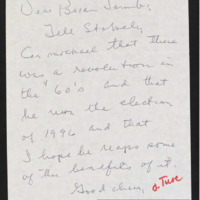 Dear Brian Lamb:
Tell Stokely
Carmichael that there
was a revolution in
the "60's and that
he won the election
of 1996 and that
I hope he reaps some
of the benefits of it.
Good cheer,